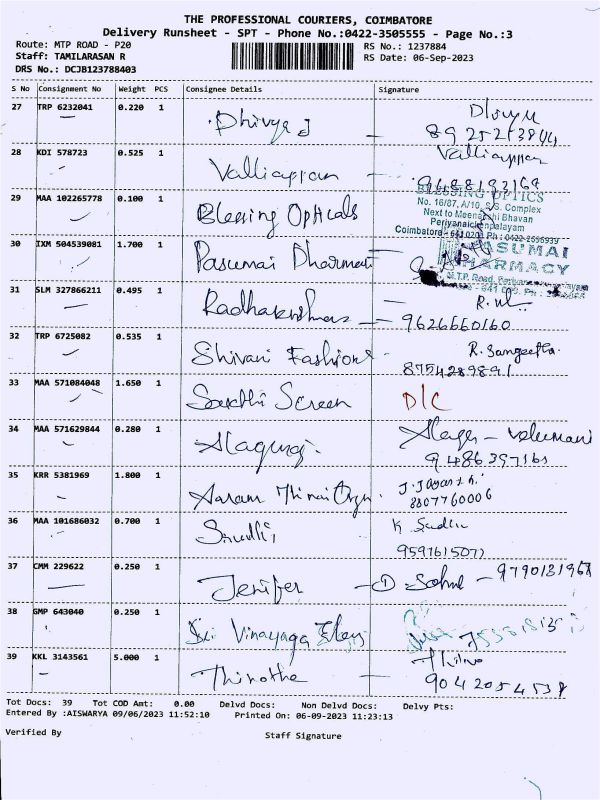 THE PROFESSIONAL COURIERS, COIMBATORE
Delivery Runsheet - SPT - Phone No.:0422-3505555 - Page No.:3
Route: MTP ROAD - P20
RS No.: 1237884
Staff: TAMILARASAN R
RS Date: 06-Sep-2023
DRS No.: DCJB123788403
S No Consignment No Weight PCS Consignee Details Signature
27 TRP 6232041 0.220 1 Dhivya J
28 KDI 578723 0.525 1 Valliappan Valliappan
29 MAA 102265778 0.100 1 Blessing Opticals
BLESSING OPTICS
No. 16/87, A/10, S.S. Complex
Next to Meenakshi Bhavan
Periyanaickenpalayam
Coimbatore - 641 020. Ph : 0422-2696939
30 IXM 504539081 1.700 1 Pasumai Pharmacy
PASUMAI
PHARMACY
31 SLM 327866211 0.495 1 Radhakrishnan
9626660160
32 TRP 6725082 0.535 1 Shivani Fashions R. Sangeetha
8754289891
33 MAA 571084048 1.650 1 Sakthi Screen D/C
34 MAA 571629844 0.280 1 Alaguraj
35 KRR 5381969 1.800 1
8807760006
36 MAA 101686032 0.700 1 Sruthi
9591615077
37 CMM 229622 0.250 1 Jenifer
38 GMP 643040 0.250 1 Sri Vinayaga
39 KKL 3143561 5.000 1
9042054538
Tot Docs: 39 Tot COD Amt: 0.00 Delvd Docs: Non Delvd Docs: Delvy Pts:
Entered By :AISWARYA 09/06/2023 11:52:10 Printed On: 06-09-2023 11:23:13
Verified By
Staff Signature